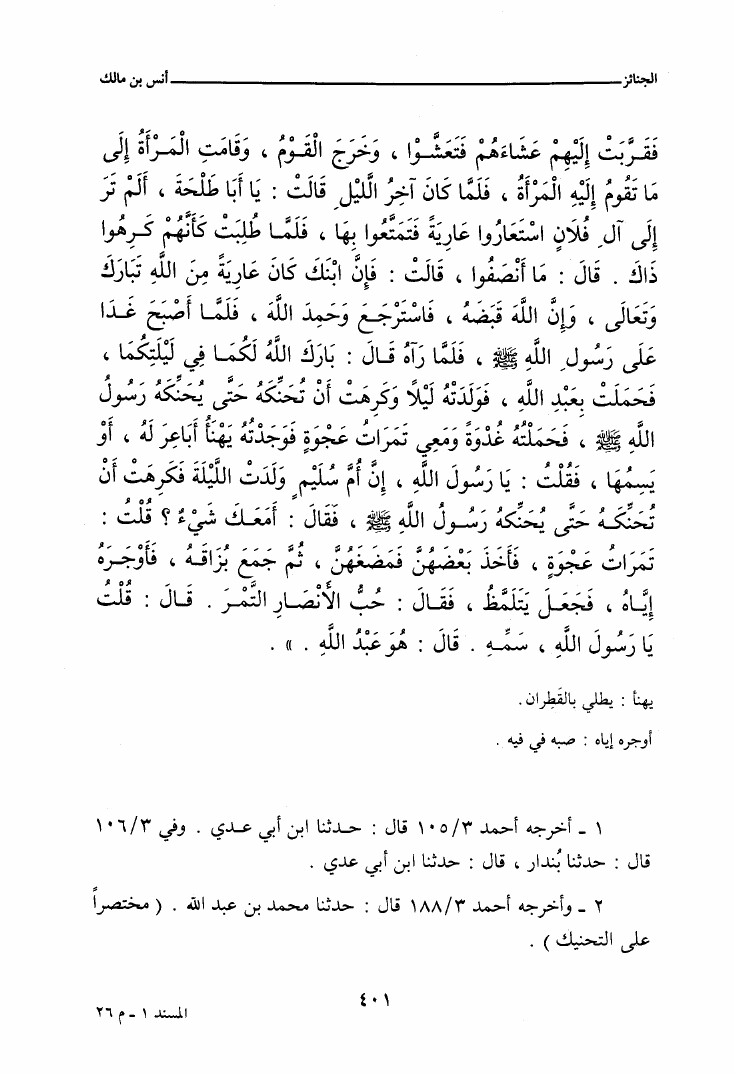 الجنائز ــــــــــــــــــــــــــــــــ أنس بن مالك
فَقَـرَّبَتْ إِلَيْهِمْ عَشَاءَهُمْ فَتَعَشَّـوْا ، وَخَرَجَ الْقَـوْمُ ، وَقَامَتِ الْمَـرْأَةُ إِلَى
مَا تَقُومُ إِلَيْهِ الْمَرْأَةُ ، فَلَمَّا كَانَ آخِرُ الَّليْلِ قَالَتْ : يَا أَبَا طَلْحَةَ ، أَلَمْ تَرَ
إِلَى آلِ فُلَانٍ اسْتَعَارُوا عَارِيَةً فَتَمَتَّعُوا بِهَا ، فَلَمَّـا طُلِبَتْ كَأَنَّهُمْ كَـرِهُوا
ذَاكَ . قَالَ : مَا أَنْصَفُوا ، قَالَتْ : فَإِنَّ ابْنَكَ كَانَ عَارِيَةً مِنَ اللَّهِ تَبَارَكَ
وَتَعَالَى ، وَإِنَّ اللَّهَ قَبَضَهُ ، فَاسْتَرْجَـعَ وَحَمِدَ اللَّهَ ، فَلَمَّـا أَصْبَحَ غَـدَا
عَلَى رَسُولِ اللَّهِ ﷺ ، فَلَمَّا رَآهُ قَـالَ : بَارَكَ اللَّهُ لَكُمَـا فِي لَيْلَتِكُمَا ،
فَحَمَلَتْ بِعَبْدِ اللَّهِ ، فَوَلَدَتْهُ لَيْلًا وَكَرِهَتْ أَنْ تُحَنِّكَهُ حَتَّى يُحَنِّكَهُ رَسُولُ
اللَّهِ ﷺ ، فَحَمَلْتُهُ غُدْوَةً وَمَعِي تَمَرَاتُ عَجْوَةٍ فَوَجَدْتُهُ يَهْنَأُ أَبَاعِرَ لَهُ ، أَوْ
يَسِمُهَا ، فَقُلْتُ : يَا رَسُولَ اللَّهِ ، إِنَّ أُمَّ سُلَيْمٍ وَلَدَتْ اللَّيْلَةَ فَكَرِهَتْ أَنْ
تُحَنِّكَـهُ حَتَّى يُحَنِّكَهُ رَسُـولُ اللَّهِ ﷺ ، فَقَالَ : أَمَعَـكَ شَيْءٌ ؟ قُلْتُ :
تَمَرَاتُ عَجْوَةٍ ، فَأَخَذَ بَعْضَهُنَّ فَمَضَغَهُنَّ ، ثُمَّ جَمَعَ بُزَاقَـهُ ، فَأَوْجَـرَهُ
إِيَّـاهُ ، فَجَعَـلَ يَتَلَمَّظُ ، فَقَـالَ : حُبُّ الأَنْصَـارِ التَّمْـرَ . قَـالَ : قُلْتُ
يَا رَسُولَ اللَّهِ ، سَمِّـهِ . قَالَ : هُوَ عَبْدُ اللَّهِ . » .
يهنأ : يطلي بالقَطِران .
أوجره إياه : صبه في فيه .
١ ـ أخرجه أحمد ٣/١٠٥ قال : حـدثنا ابن أبي عـدي . وفي ٣/١٠٦
قال : حدثنا بُندار ، قال : حدثنا ابن أبي عدي .
٢ ـ وأخرجه أحمد ٣/١٨٨ قال : حدثنا محمد بن عبد الله . ( مختصراً
على التحنيك ) .
٤٠١
المسند ١ ـ م ٢٦